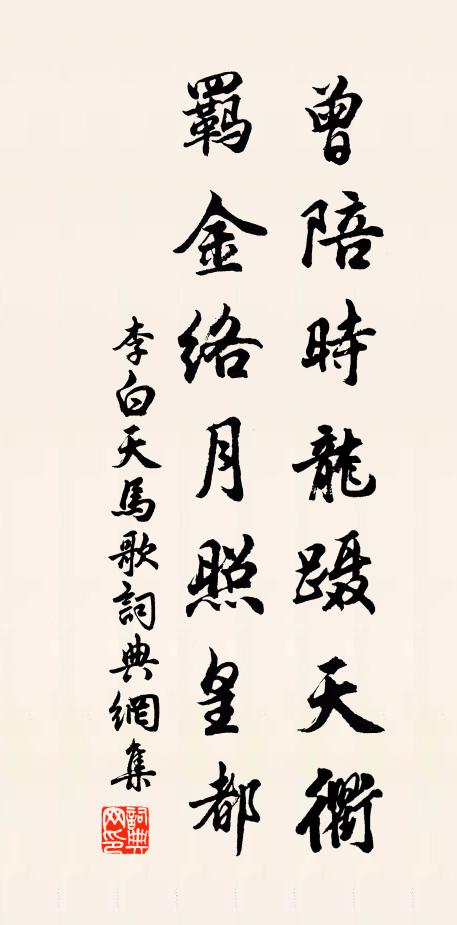 曾陪時龍蹑天衢
羈金絡月照皇都
李白天馬歌詞典網集
詞典网印